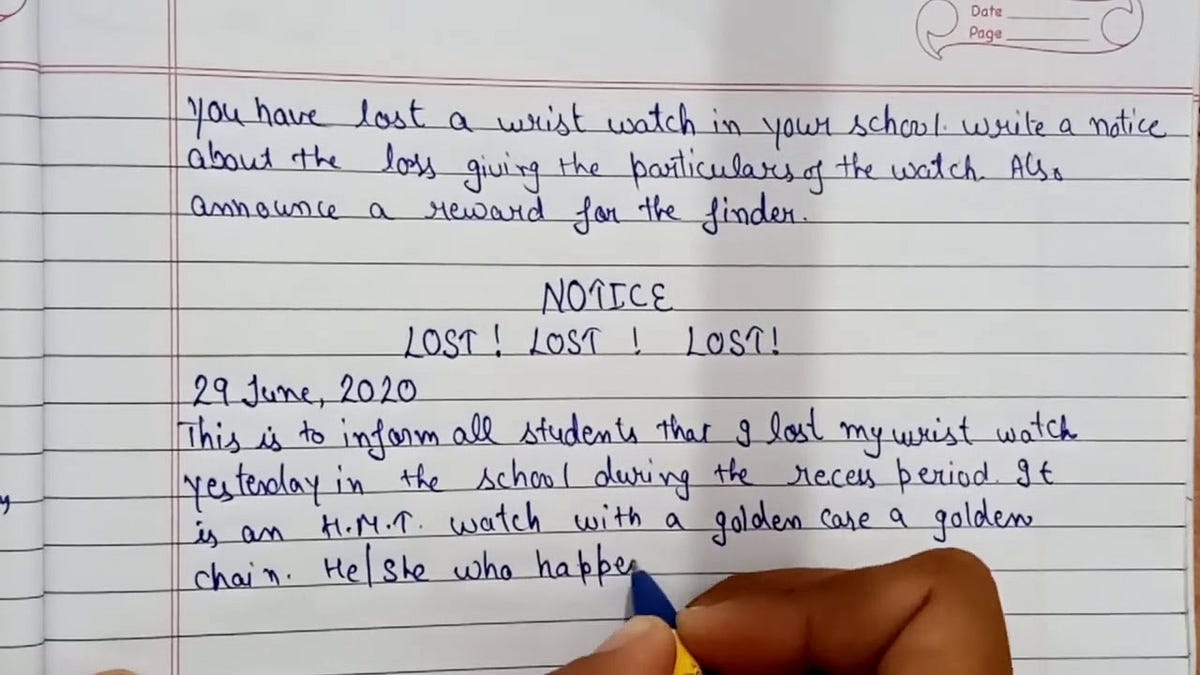 Date
Page
You have lost a wrist watch in your school. Write a notice
about the loss giving the particulars of the watch. Also
announce a reward for the finder.
NOTICE
LOST! LOST! LOST!
29 June, 2020
This is to inform all students that I lost my wrist watch
yesterday in the school during the recess period. It
y
is an H.M.T. watch with a golden case a golden
chain. He/She who happe